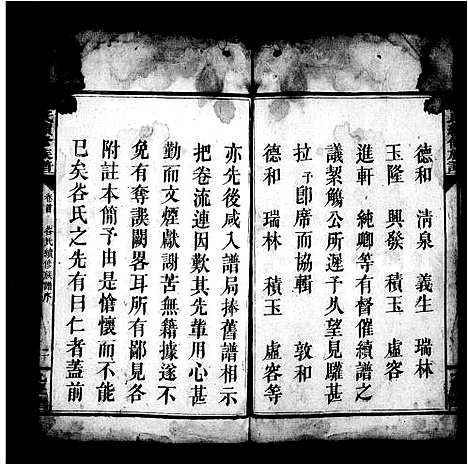 德和 清泉 義生 瑞林
玉隆 興發 積玉 虛客
進軒 純卿等有督催續譜之
議絜觴公所遲予久望見驩甚
拉予卽席而協輯 敦和
德和 瑞林 積玉 虛客等
亦先後咸入譜局捧舊譜相示
把卷流連因歎其先輩用心甚
勤而文煙獻謝苦無籍據遂不
免有奪誤闕畧耳所有鄙見各
附註本簡予由是愴懷而不能
已矣谷氏之先有曰仁者蓋前
卷首 谷氏續修族譜序